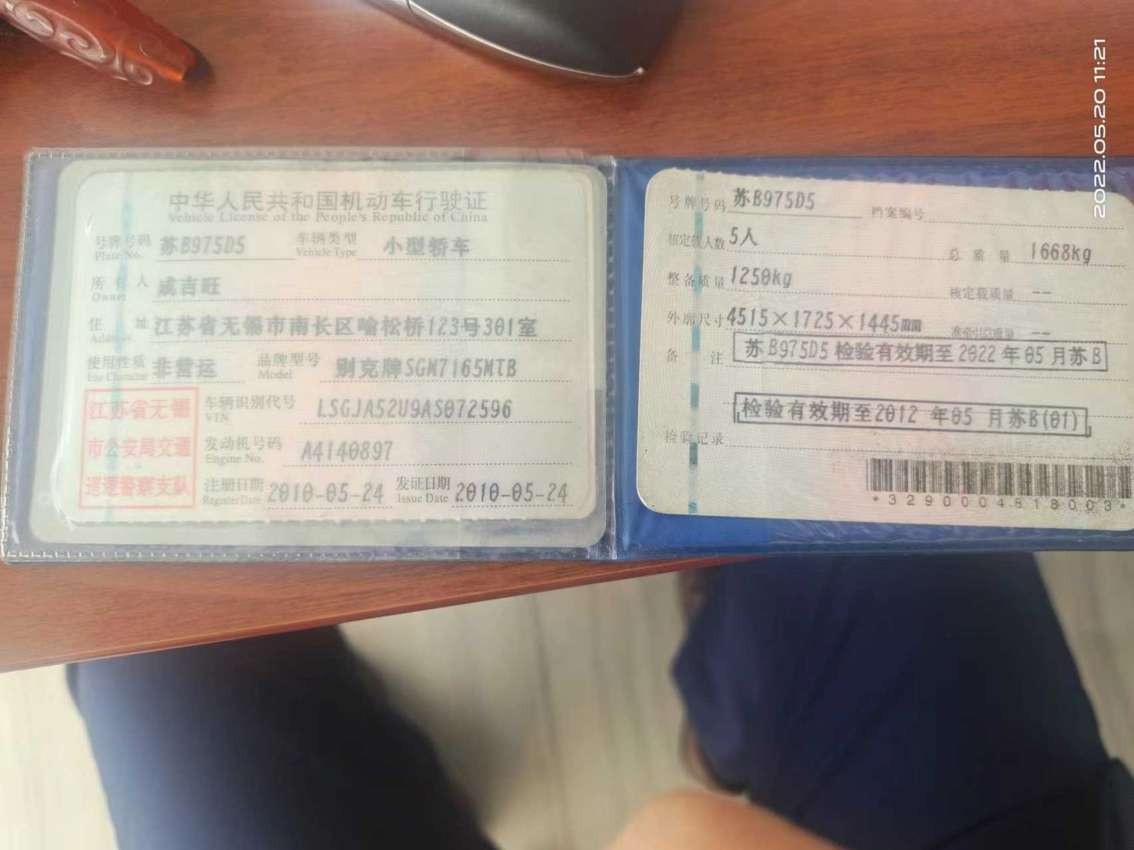 中华人民共和国机动车行驶证
Vehicle License of the People's Republic of China
号牌号码 苏B975D5 车辆类型 小型轿车
Plate No. Vehicle Type
所有人 成吉旺
Owner
住址 江苏省无锡市南长区喻松桥123号301室
Address
使用性质 非营运 品牌型号 别克牌SGM7165MTB
Use Character Model
江苏省无锡
市公安局交通
巡逻警察支队
车辆识别代号 LSGJA52U9AS072596
VIN
发动机号码 A4140897
Engine No.
注册日期 2010-05-24 发证日期 2010-05-24
Register Date Issue Date
号牌号码 苏B975D5 档案编号
核定载人数 5人 总质量 1668kg
整备质量 1250kg 核定载质量 --
外廓尺寸 4515×1725×1445mm 准牵引总质量 --
备注 苏B975D5 检验有效期至 2022 年 05 月苏B
检验有效期至2012 年05 月苏B(01)
检验记录
*3290004818003*
2022.05.20 11:21